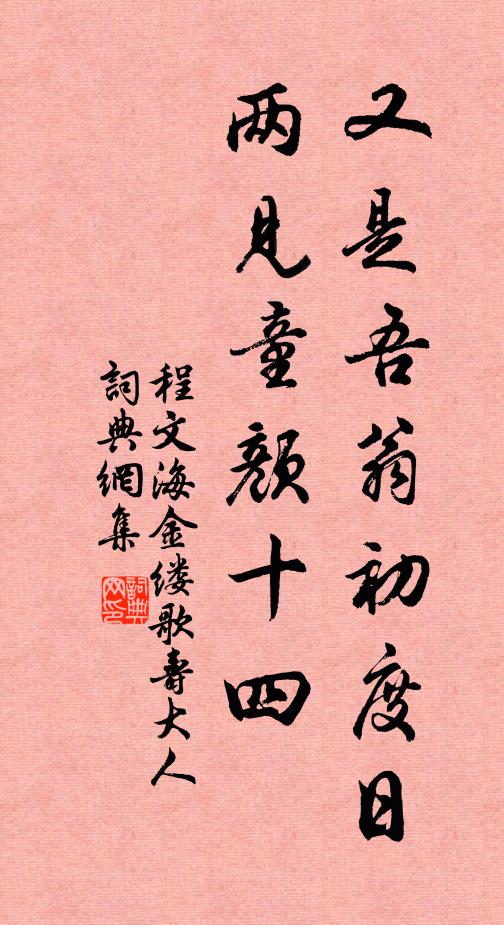 又是吾翁初度日
两见童颜十四
程文海金缕歌壽大人
詞典網集
詞典网印